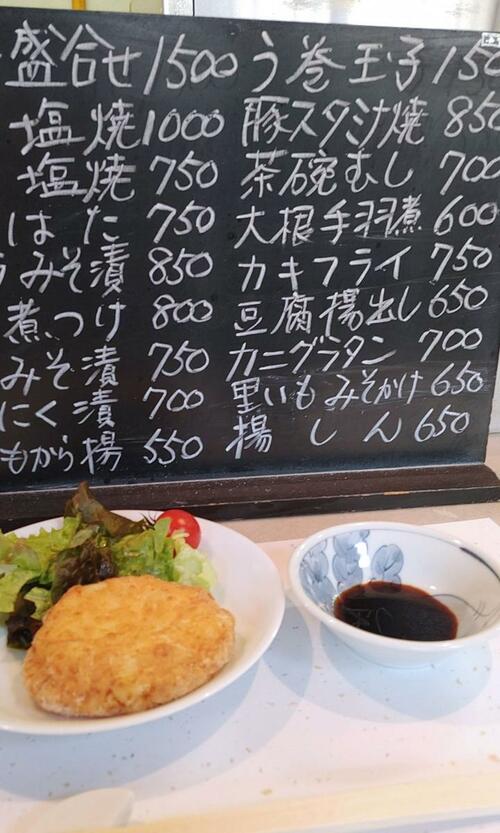 盛合せ 1500
塩焼 1000
塩焼 750
はた 750
みそ漬 850
煮つけ 800
みそ漬 750
にく漬 700
もから揚 550
う巻玉子 150
豚スタミナ焼 850
茶碗むし 700
大根手羽煮 600
カキフライ 750
豆腐揚出し 650
カニグラタン 700
里いもみそかけ 650
揚しん 650